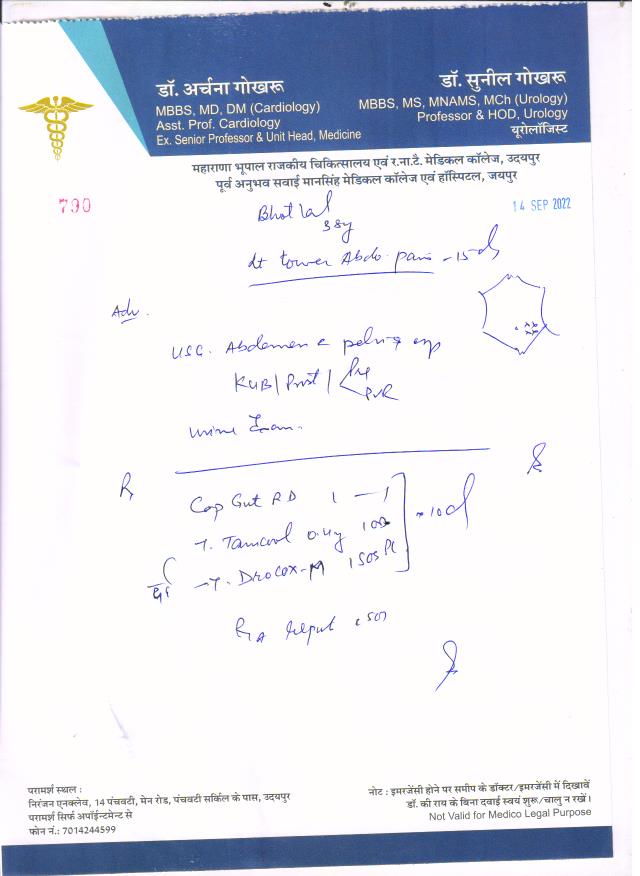 डॉ. अर्चना गोखरू
MBBS, MD, DM (Cardiology)
Asst. Prof. Cardiology
Ex. Senior Professor & Unit Head, Medicine
डॉ. सुनील गोखरू
MBBS, MS, MNAMS, MCh (Urology)
Professor & HOD, Urology
यूरोलॉजिस्ट
महाराणा भूपाल राजकीय चिकित्सालय एवं र.ना.टै. मेडिकल कॉलेज, उदयपुर
पूर्व अनुभव सवाई मानसिंह मेडिकल कॉलेज एवं हॉस्पिटल, जयपुर
790
14 SEP 2022
38y
Lt lower Abdo. pain - 15 d
Adv.
USG. Abdomen & pelvis
KUB / Prost / Pre
PVR
Urine Exam.
Rx
Cap Gut RD 1 — 1
T. 0.4mg
T. Drocox-M 1 SOS
x 10 d
SOS
परामर्श स्थल :
निरंजन एनक्लेव, 14 पंचवटी, मेन रोड, पंचवटी सर्किल के पास, उदयपुर
परामर्श सिर्फ अपॉईन्टमेन्ट से
फोन नं.: 7014244599
नोट : इमरजेंसी होने पर समीप के डॉक्टर/इमरजेंसी में दिखावें
डॉ. की राय के बिना दवाई स्वयं शुरू/चालु न रखें।
Not Valid for Medico Legal Purpose